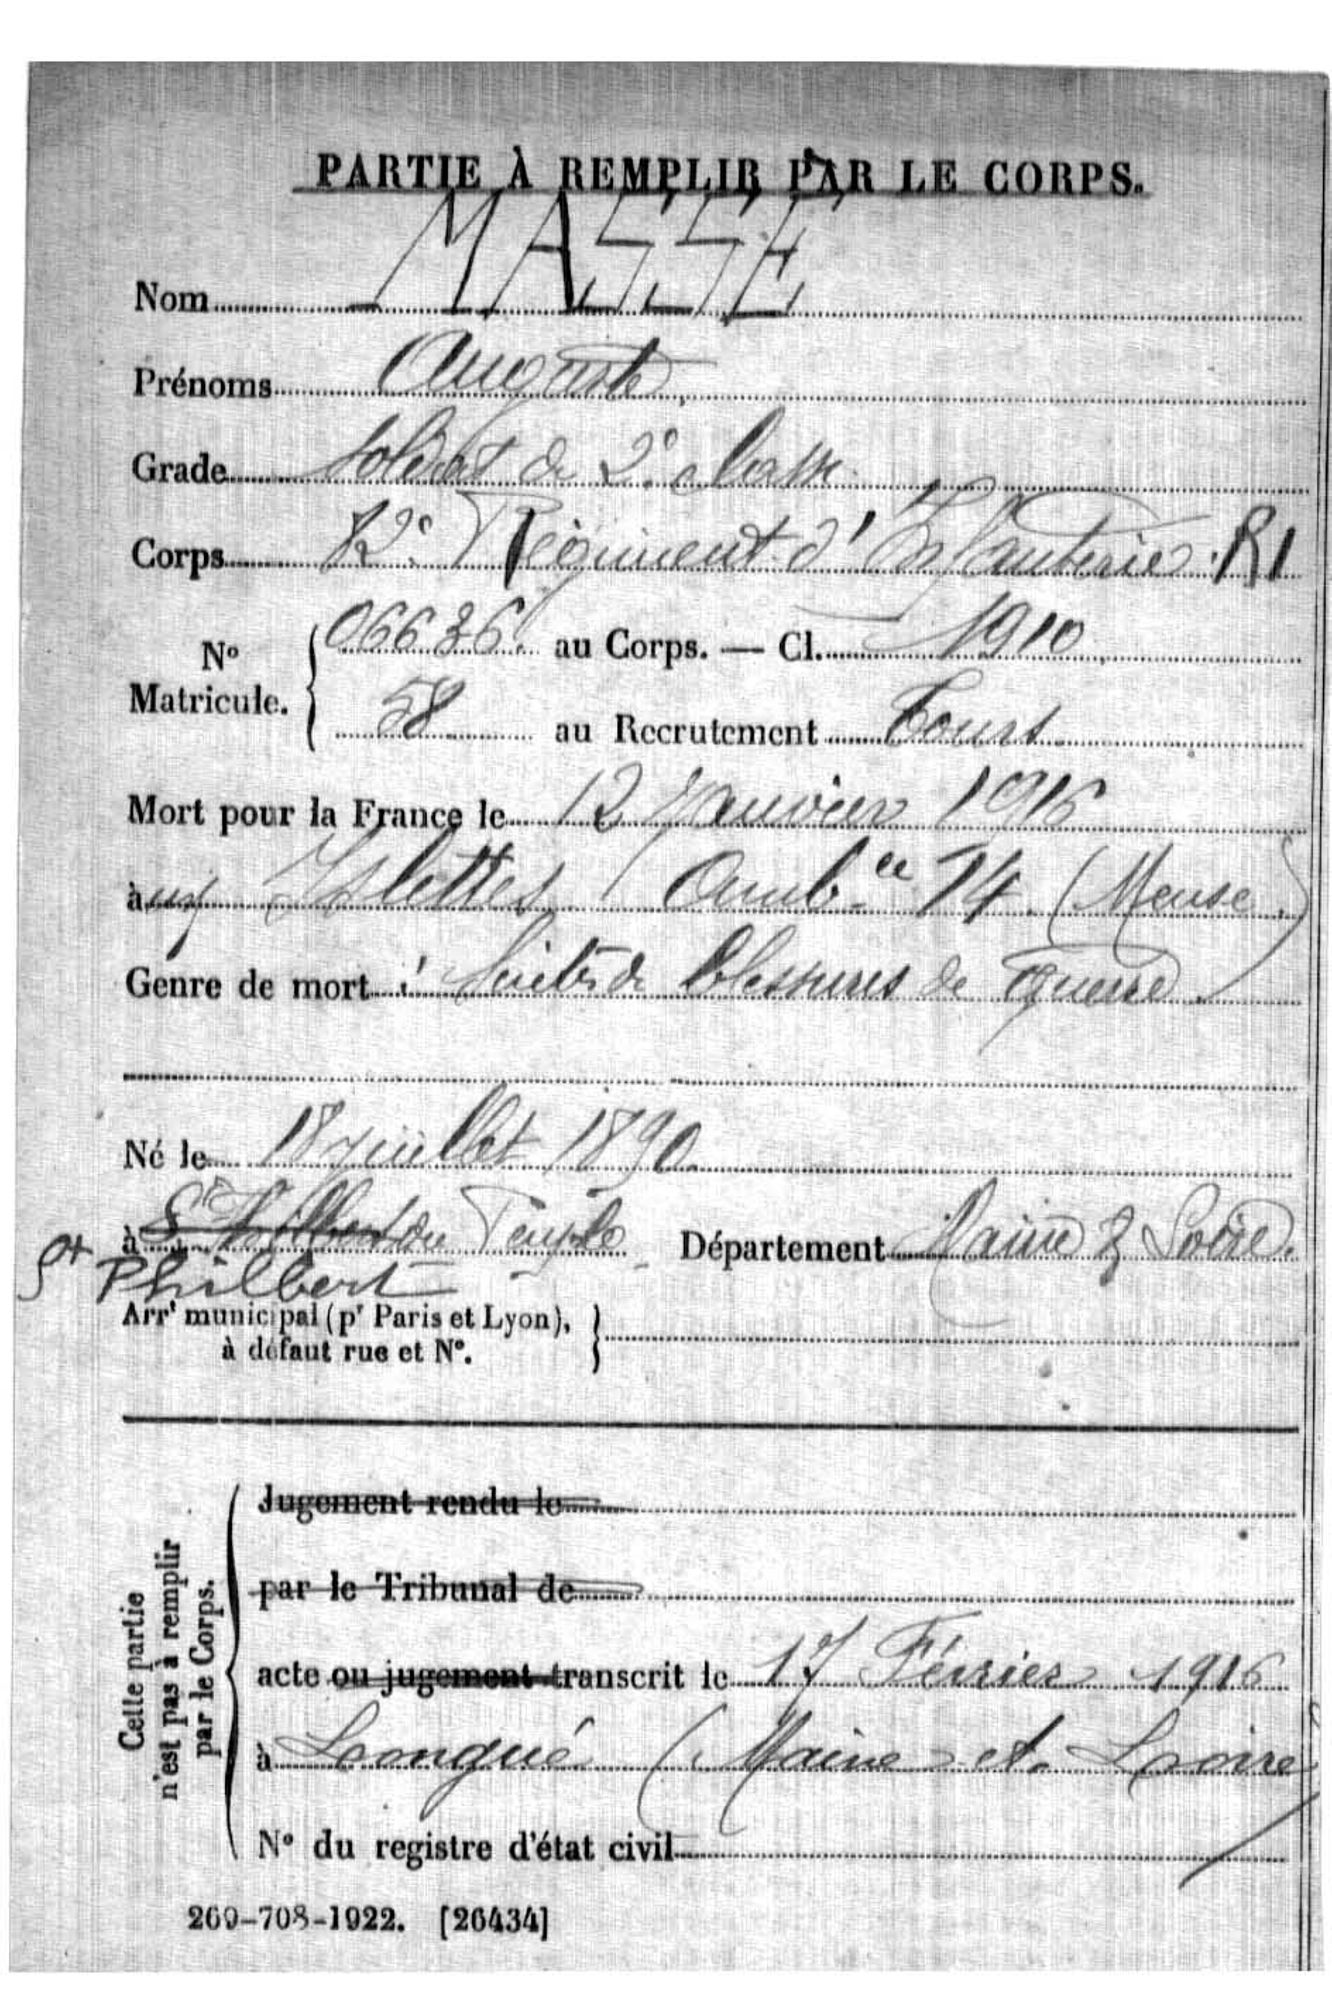 PARTIE À REMPLIR PAR LE CORPS.
Nom MASSE
Prénoms Auguste
Grade soldat de 2e classe
Corps 82e Régiment d'Infanterie. RI
No Matricule. 06636. au Corps. — Cl. 1910
58 au Recrutement Tours
Mort pour la France le 12 Janvier 1916
aux Islettes Ambce 74 (Meuse)
Genre de mort : Suites de blessures de guerre
Né le 18 juillet 1890
à St du Temple Département Maine & Loire.
St Philbert
Arrt municipal (pr Paris et Lyon),
à défaut rue et No.
Cette partie
n'est pas à remplir
par le Corps.
Jugement rendu le
par le Tribunal de
acte ou jugement transcrit le 17 Février 1916
à Longué (Maine et Loire)
No du registre d'état civil
269-708-1922. [26434]